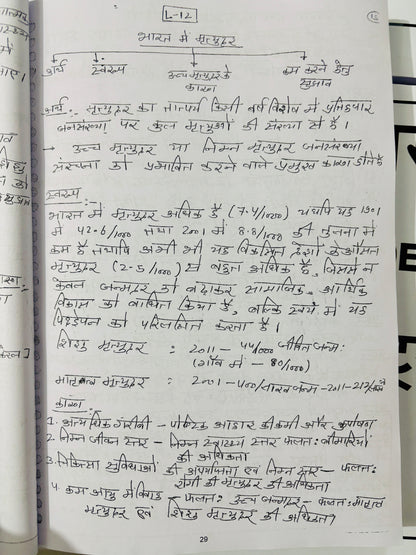 L-12
भारत में मृत्युदर
अर्थ स्वरूप उच्च मृत्युदर के कारण कम करने हेतु सुझाव
अर्थ:- मृत्युदर का तात्पर्य किसी वर्ष विशेष में प्रतिहजार
जनसंख्या पर कुल मृत्युओं की संख्या से है।
→ उच्च मृत्युदर या निम्न मृत्युदर जनसंख्या
संरचना को प्रभावित करने वाले प्रमुख कारण होते हैं
स्वरूप
भारत में मृत्युदर अधिक है (7.4/1000) यद्यपि यह 1901
में 42.6/1000 तथा 2001 में 8.8/1000 की तुलना में
कम है तथापि अभी भी यह विकसित देशों के औसत
मृत्युदर (2.5/1000) से बहुत अधिक है, जिसमें न
केवल जन्मदर को बढ़ाकर सामाजिक, आर्थिक
विकास को बाधित किया है, बल्कि स्वयं में यह
पिछड़ेपन को परिलक्षित करता है।
शिशु मृत्युदर : 2011 - 44/1000 जीवित जन्म:
(गाँव में - 80/1000)
मातृत्व मृत्युदर : 2001 - 400/लाख जन्म - 2011 - 212/लाख
कारण:
1. अत्यधिक गरीबी - पौष्टिक आहार की कमी और कुपोषण
2. निम्न जीवन स्तर - निम्न स्वास्थ्य स्तर फलत: बीमारियों
की अधिकता
3. चिकित्सा सुविधाओं की अपर्याप्तता एवं निम्न स्तर - फलत:
रोगी की मृत्युदर की अधिकता
4. कम आयु में विवाह - फलत: उच्च जन्मदर - फलत: मातृत्व
मृत्युदर एवं शिशु मृत्युदर की अधिकता।
29